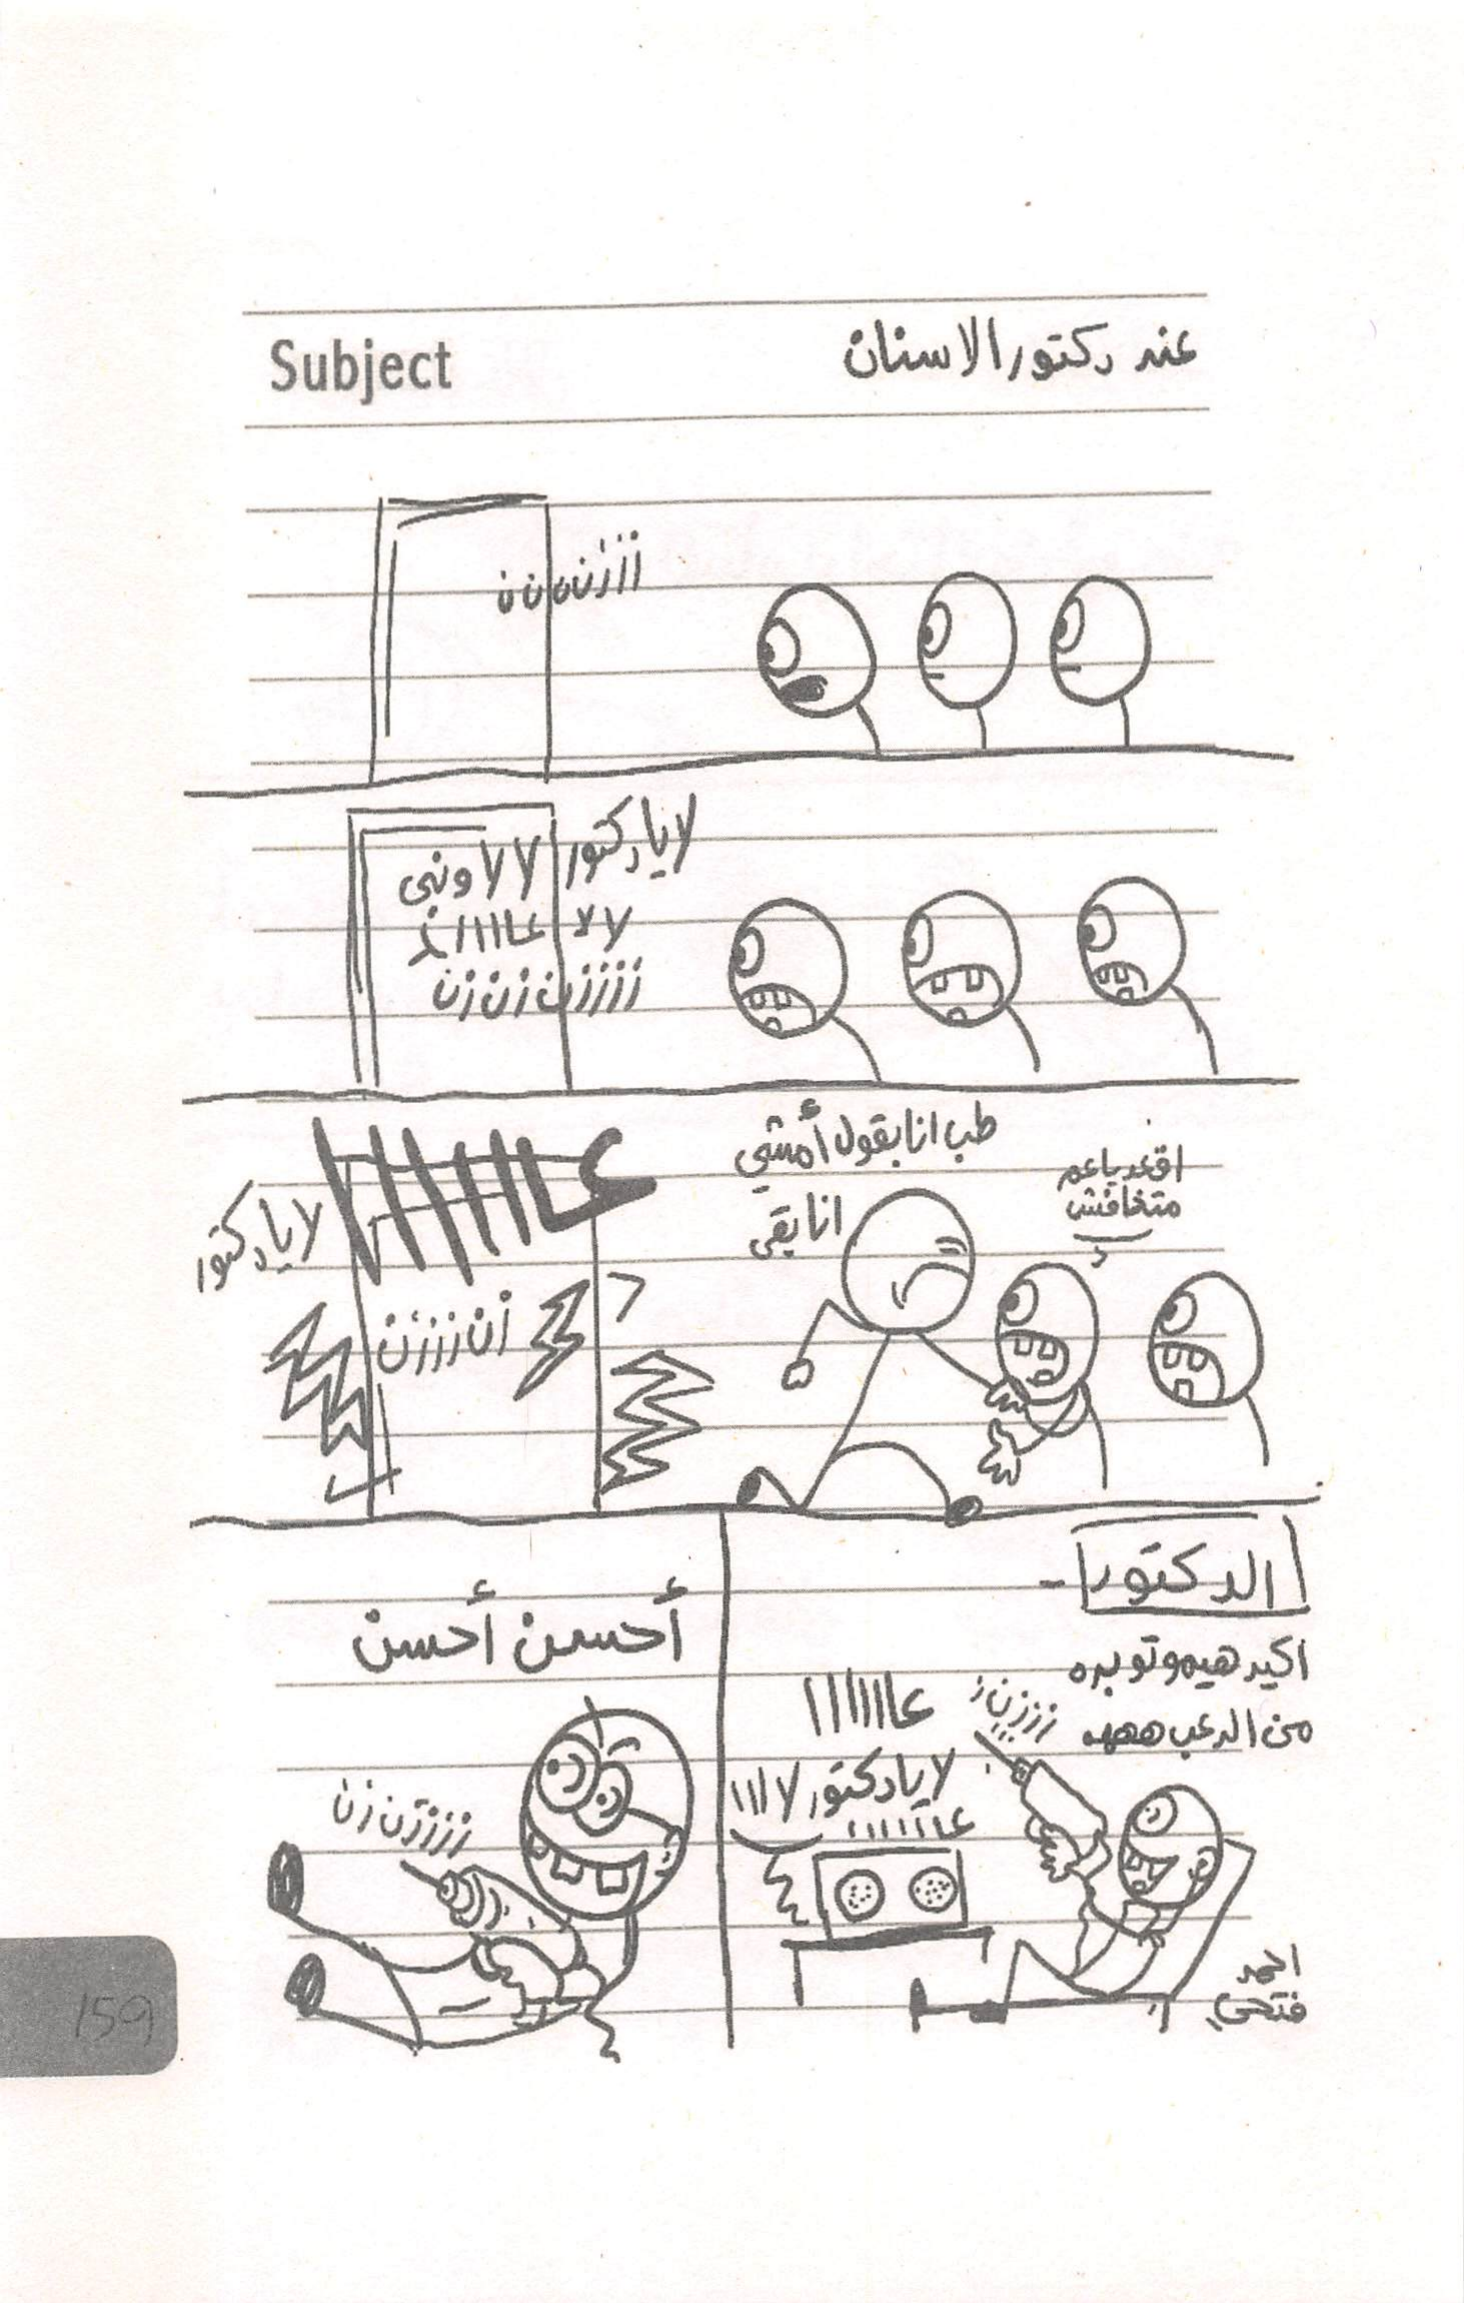 Subject
عند دكتور الاسنان
زززننننن
لا يا دكتور لا لا ونبى
لا لا عااااا
زززززن زن زن
عااااااا
لا يا دكتور
زن ززززن
طب انا بقول أمشي
انا بقى
اقعد يا عم
متخافش
الدكتور
اكيد هيموتو بره
من الرعب هههه
ززززن
عاااااا
لا يا دكتور لاااا
عاااااا
احمد
فتحي
أحسن أحسن
ززززن زن
159